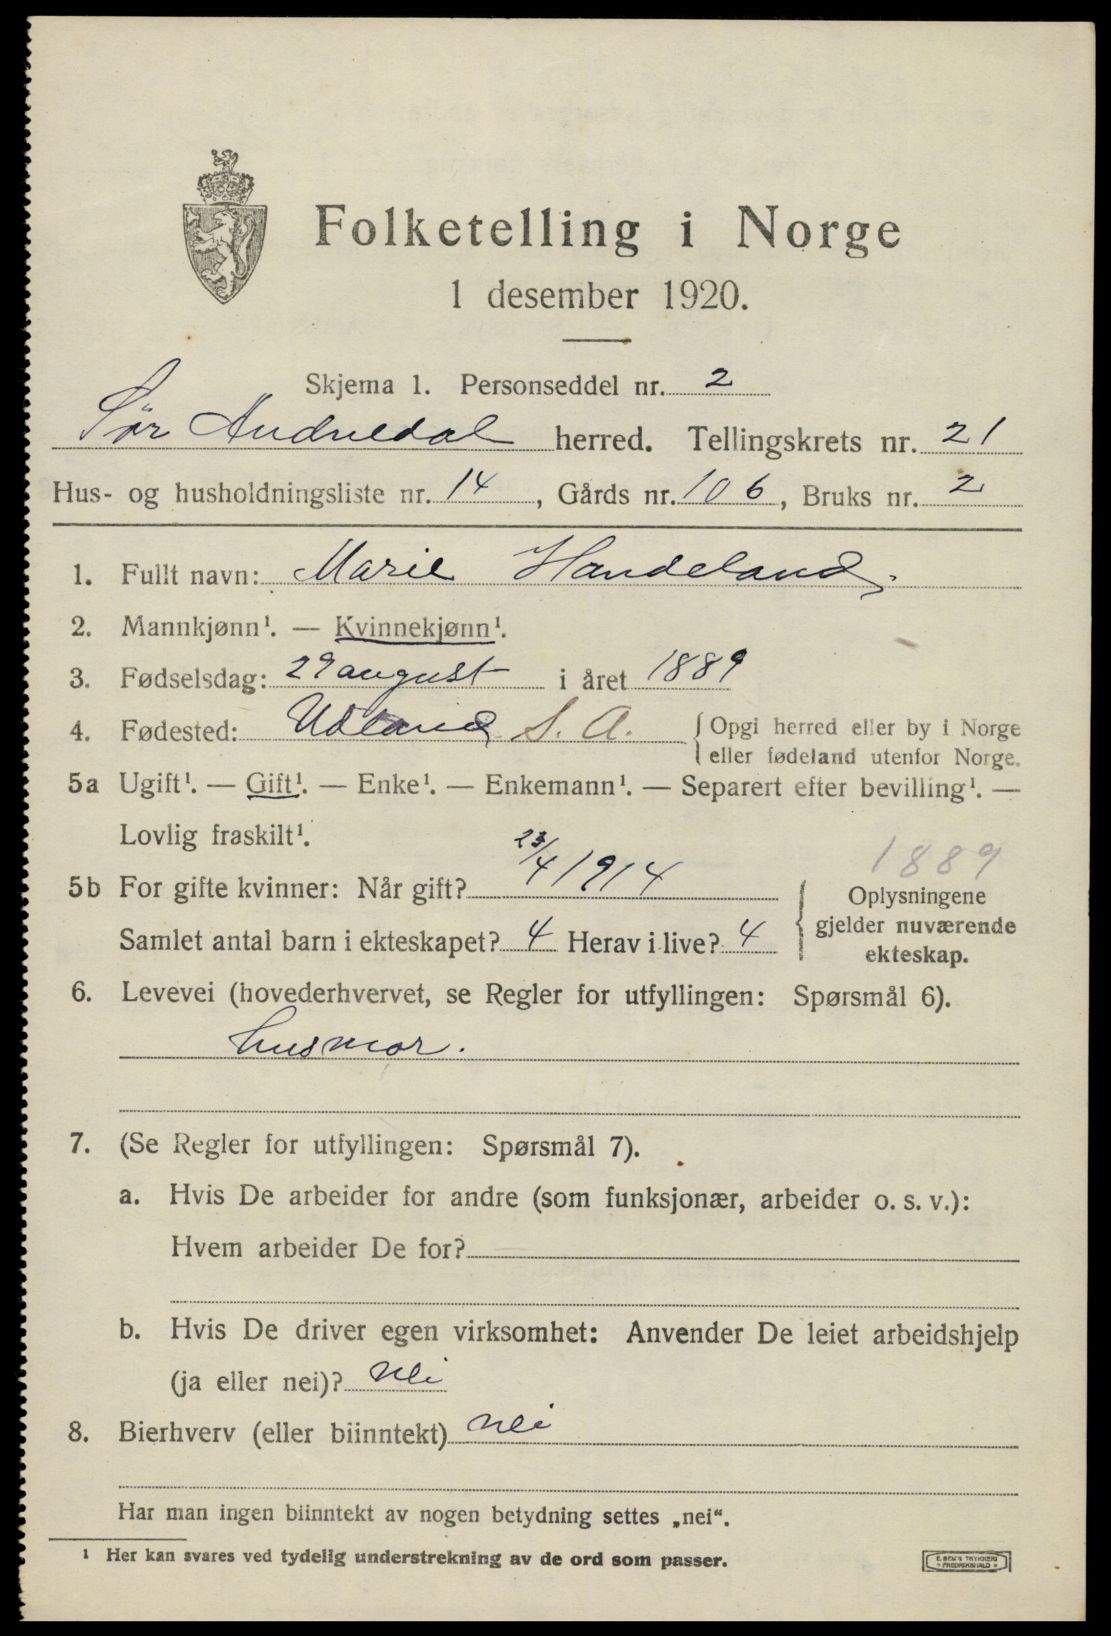 Folketelling i Norge
1 desember 1920.
Skjema 1. Personseddel nr. 2
Sør Audnedal herred. Tellingskrets nr. 21
Hus- og husholdningsliste nr. 14, Gårds nr. 106, Bruks nr. 2
1. Fullt navn: Marie Handeland.
2. Mannkjønn¹. — Kvinnekjønn¹.
3. Fødselsdag: 29 august i året 1889
4. Fødested: Udland S. A. Opgi herred eller by i Norge
eller fødeland utenfor Norge.
5a Ugift¹. — Gift¹. — Enke¹. — Enkemann¹. — Separert efter bevilling¹. —
Lovlig fraskilt¹.
1889
5b For gifte kvinner: Når gift? 23/4 1914 Oplysningene
gjelder nuværende
ekteskap.
Samlet antal barn i ekteskapet? 4 Herav i live? 4
6. Levevei (hovederhvervet, se Regler for utfyllingen: Spørsmål 6).
husmor.
7. (Se Regler for utfyllingen: Spørsmål 7).
a. Hvis De arbeider for andre (som funksjonær, arbeider o. s. v.):
Hvem arbeider De for?
b. Hvis De driver egen virksomhet: Anvender De leiet arbeidshjelp
(ja eller nei)? nei
8. Bierhverv (eller biinntekt) nei
Har man ingen biinntekt av nogen betydning settes „nei".
¹ Her kan svares ved tydelig understrekning av de ord som passer.
E. SEM'S TRYKKERI
FREDRIKSHALD